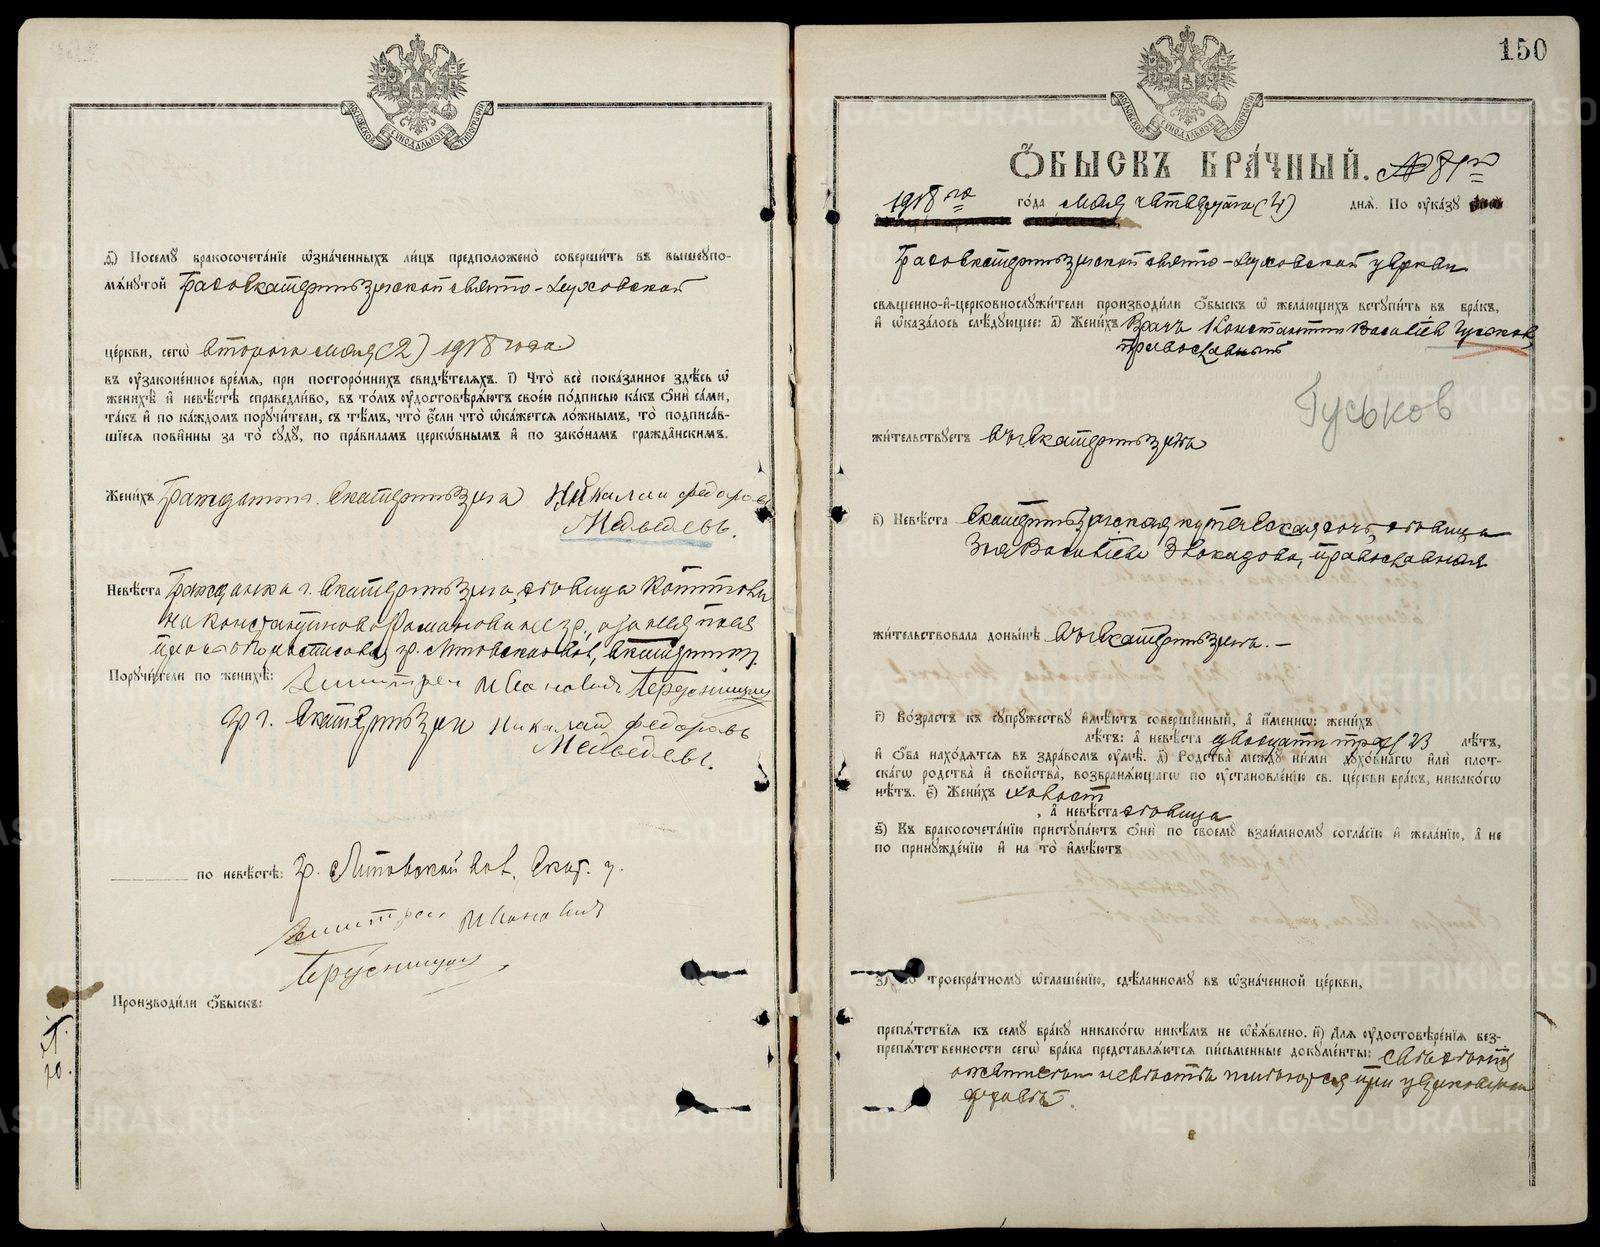 МОСКОВСКОЙ СѴНОДАЛЬНОЙ ТИПОГРАФІИ
ѳ҃) Посемꙋ̀ бракосочета́нїе ѡ҆зна́ченныхъ ли́цъ предположено̀ соверши́ть въ вышеꙋпо-
мѧ́нꙋтой Градо Екатеринбургской свято-Духовской
це́ркви, сегѡ̀ второго мая (2) 1918 года
въ ᲂу҆зако́ненное вре́мѧ, при посторо́ннихъ свидѣ́телѧхъ. і҃) Что̀ всѐ пока́занное здѣ́сь ѡ҆
женихѣ̀ и҆ невѣ́стѣ справедли́во, въ то́мъ ᲂу҆достовѣрѧ́ютъ свое́ю по́дписью ка́къ ѻ҆нѝ са́ми,
та́къ и҆ по ка́ждомъ порꙋчи́тели, съ тѣ́мъ, что̀ є҆́сли что̀ ѡ҆ка́жетсѧ ло́жнымъ, то̀ подписа́в-
шїесѧ пови́нны за то̀ сꙋдꙋ̀, по пра́виламъ церкѡ́внымъ и҆ по зако́намъ гражда́нскимъ.
Жени́хъ Гражданин г. Екатеринбурга Николай Федоров
Медведевъ.
Невѣ́ста Гражданка г. Екатеринбурга, девица
на Константинова Романова
гр. Литовской вол., Екатеринб.
Порꙋчи́тели по женихѣ̀: Дмитрей Иванович Брусницин
гр г. Екатеринбурга Николай Федоровъ
Медведевъ.
по невѣ́стѣ: гр. Литовской вол. Екат. у.
Дмитрей Иванович
Брусницин
Производи́ли ѻ҆́быскъ:
150
МОСКОВСКОЙ СѴНОДАЛЬНОЙ ТИПОГРАФІИ
Ѻ҆́БЫСКЪ БРА́ЧНЫЙ. № 81й
1918 го го́да мая четвертаго (4) днѧ̀. По ᲂу҆ка́зꙋ
Градо Екатеринбургской свято-Духовской церкви
свѧще́нно-и҆-церковнослꙋжи́тели производи́ли ѻ҆́быскъ ѡ҆ жела́ющихъ встꙋпи́ть въ бра́къ,
и҆ ѡ҆каза́лось слѣ́дꙋющее: а҃) Жени́хъ Врачъ Константин Василiев Гуськов,
православный
Гуськов
жи́тельствꙋетъ въ г. Екатеринбурге
в҃) Невѣ́ста Екатеринбургская купеческая дочь, девица
Зоя Василiева Злоказова, православная
жи́тельствовала доны́нѣ въ г. Екатеринбурге. –
г҃) Во́зрастъ къ сꙋпрꙋ́жествꙋ и҆мѣ́ютъ соверше́нный, а҆ и҆́меннѡ: жени́хъ
лѣ́тъ: а҆ невѣ́ста двадцати трех 23 лѣ́тъ,
и҆ ѻ҆́ба нахо́дѧтсѧ въ здра́вомъ ᲂу҆мѣ̀. д҃) Родства̀ ме́ждꙋ ни́ми дꙋхо́внагѡ и҆лѝ пло́т-
скагѡ родства̀ и҆ сво́йства, возбранѧ́ющагѡ по ᲂу҆становле́нїю св. це́ркви бра́къ, никако́гѡ
нѣ́тъ. є҃) Жени́хъ холост
, а҆ невѣ́ста девица
ѕ҃) Къ бракосочета́нїю пристꙋпа́ютъ ѻ҆нѝ по своемꙋ̀ взаи́мномꙋ согла́сїю и҆ жела́нїю, а҆ не
по принꙋжде́нїю и҆ на то̀ и҆мѣ́ютъ
з҃) По троекра́тномꙋ ѡ҆глаше́нїю, сдѣ́ланномꙋ въ ѡ҆зна́ченной це́ркви,
препѧ́тствїѧ къ семꙋ̀ бра́кꙋ никако́гѡ никѣ́мъ не ѡ҆б̾ѧ́влено. и҃) Длѧ̀ ᲂу҆достовѣ́ренїѧ без-
препѧ́тственности сегѡ̀ бра́ка представлѧ́ютсѧ пи́сьменные докꙋме́нты:
METRIKI.GASO-URAL.RU